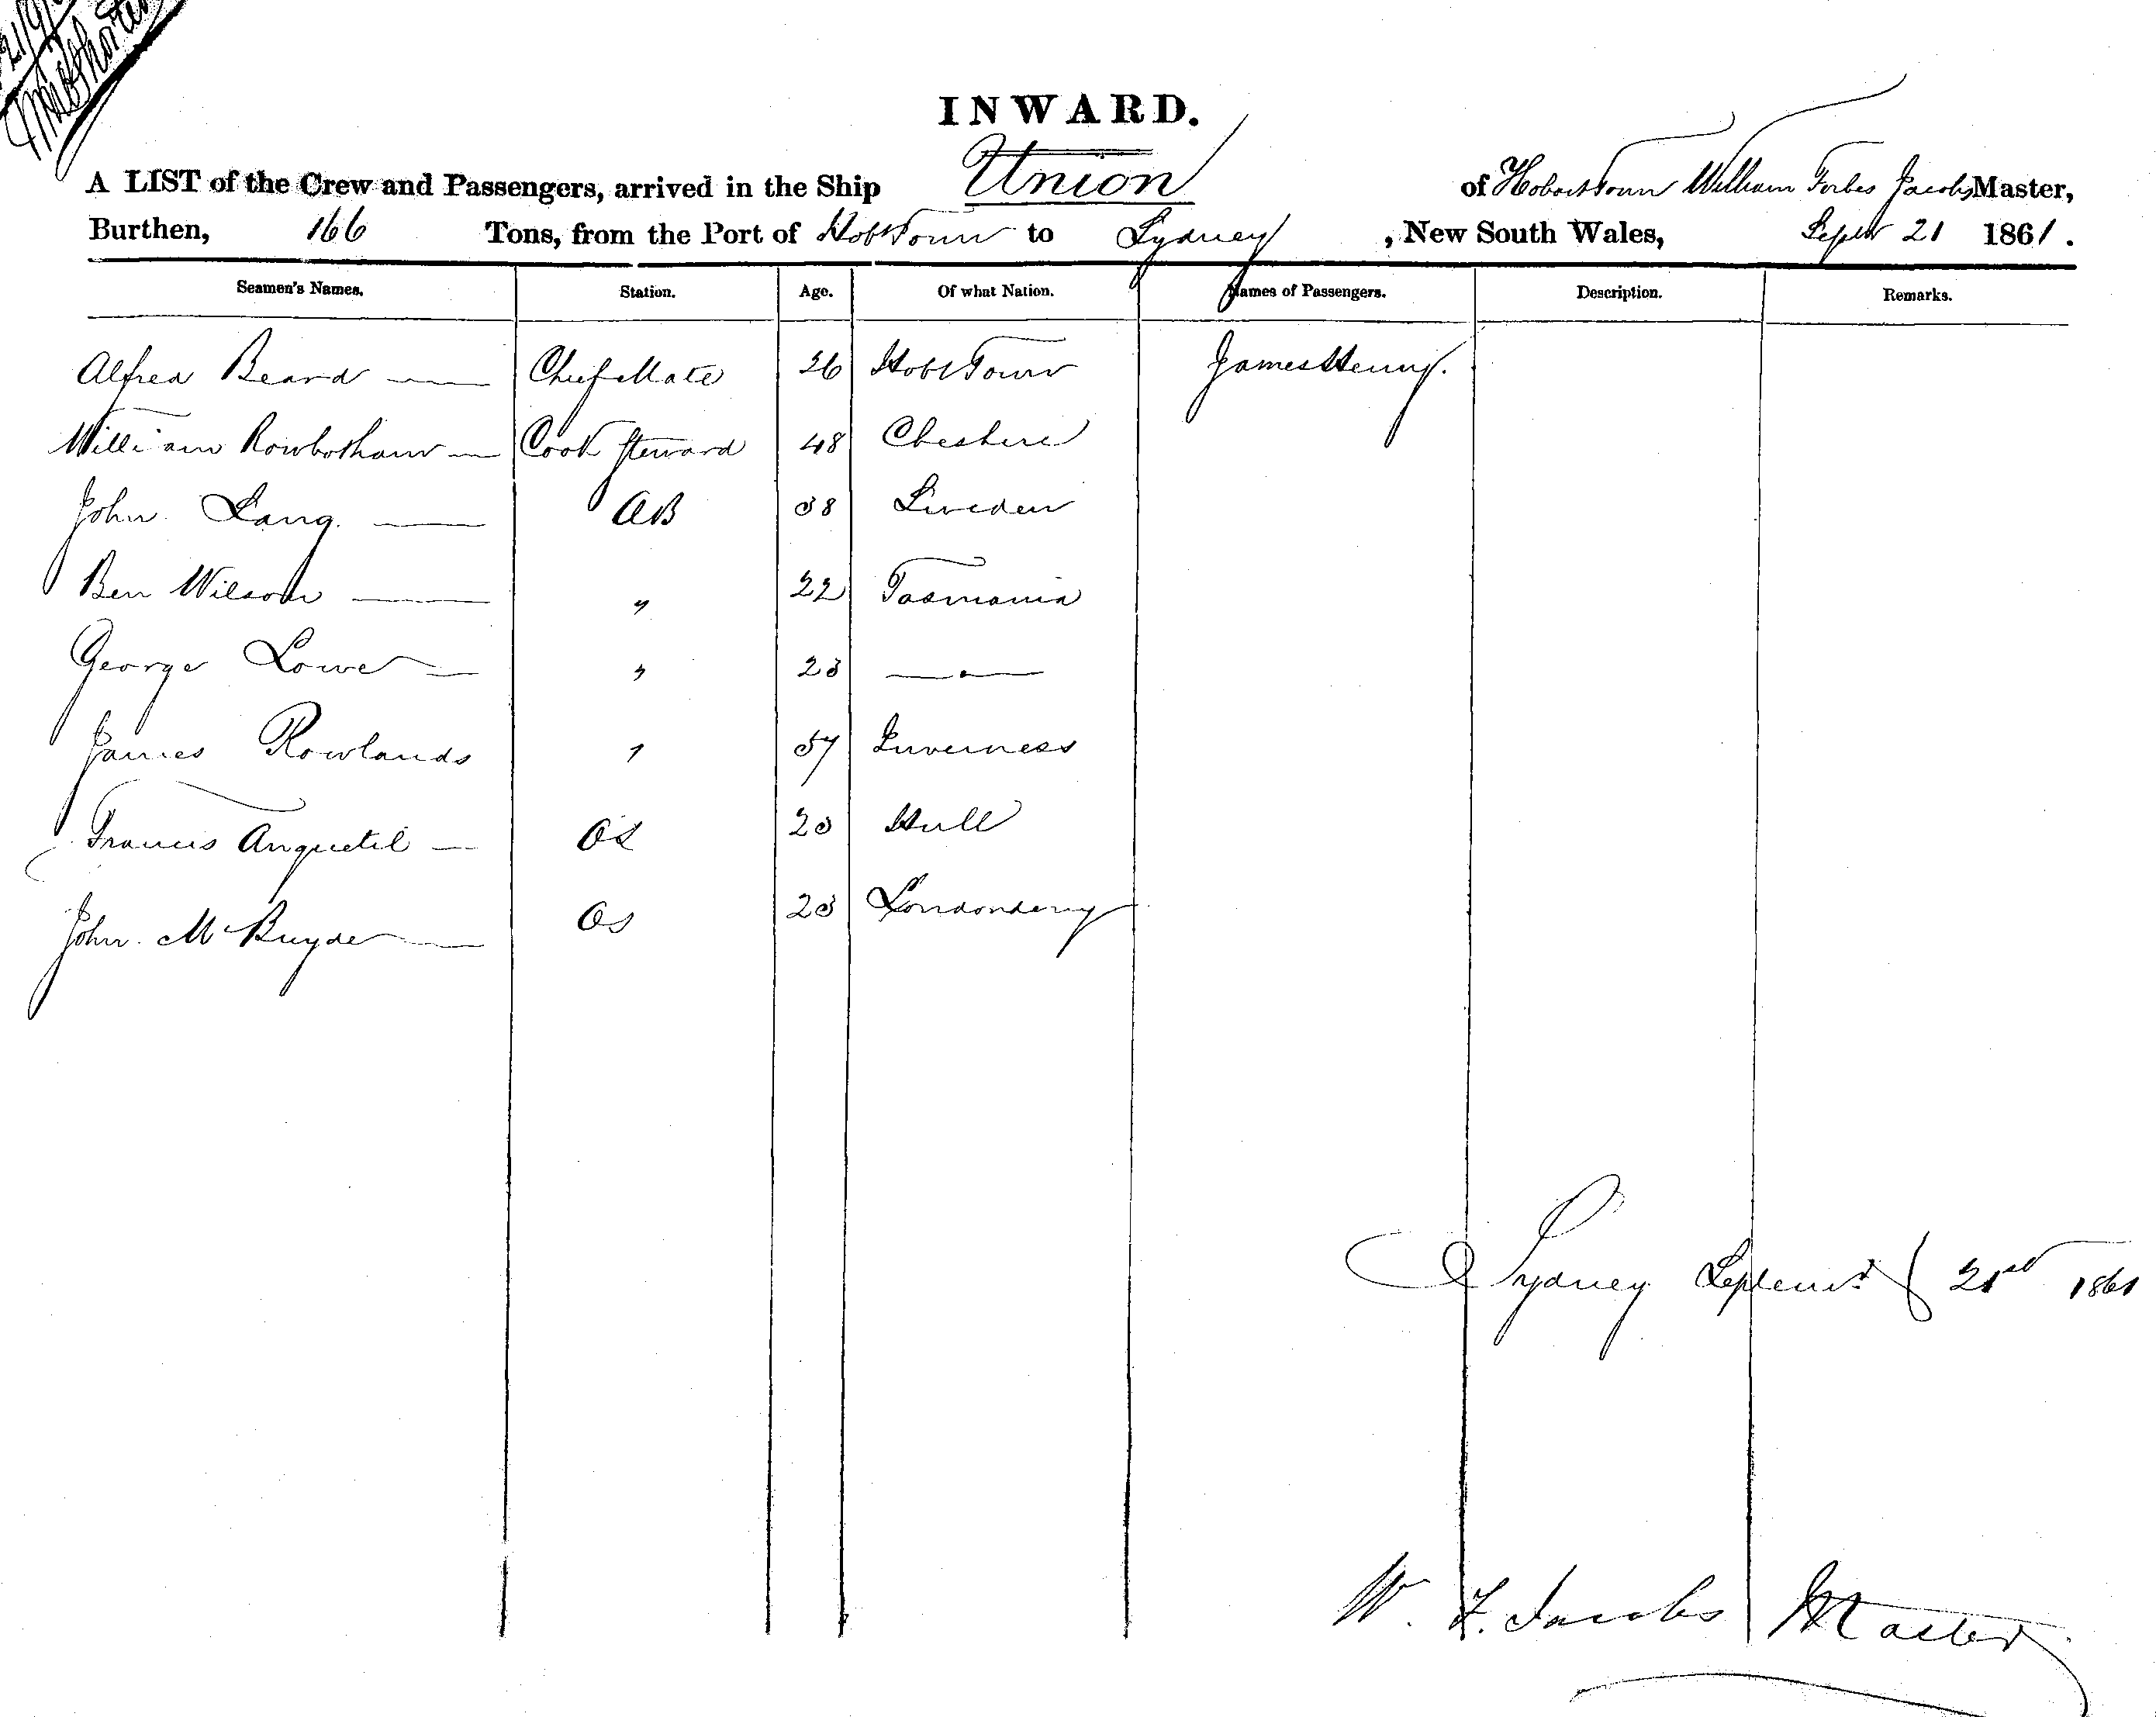 21/9/
INWARD.
A LIST of the Crew and Passengers, arrived in the Ship Union of Hobart Town William Forbes Jacobs Master,
Burthen, 166 Tons, from the Port of Hobt Town to Sydney, New South Wales, Septr 21 1861.
Seamen's Names. Station. Age. Of what Nation. Names of Passengers. Description. Remarks.
Alfred Beard — Chief Mate 26 Hobt Town James Henry.
William Rowbotham — Cook Steward 48 Cheshire
John Lang. — AB 38 Sweden
Ben Wilson — " 22 Tasmania
George Lowe — " 23 — " —
James Rowlands " 57 Inverness
Francis Anquetil — OS 23 Hull
John McBuyde — OS 23 Londonderry
Sydney Septemr 21st 1861
W. F. Jacobs Master